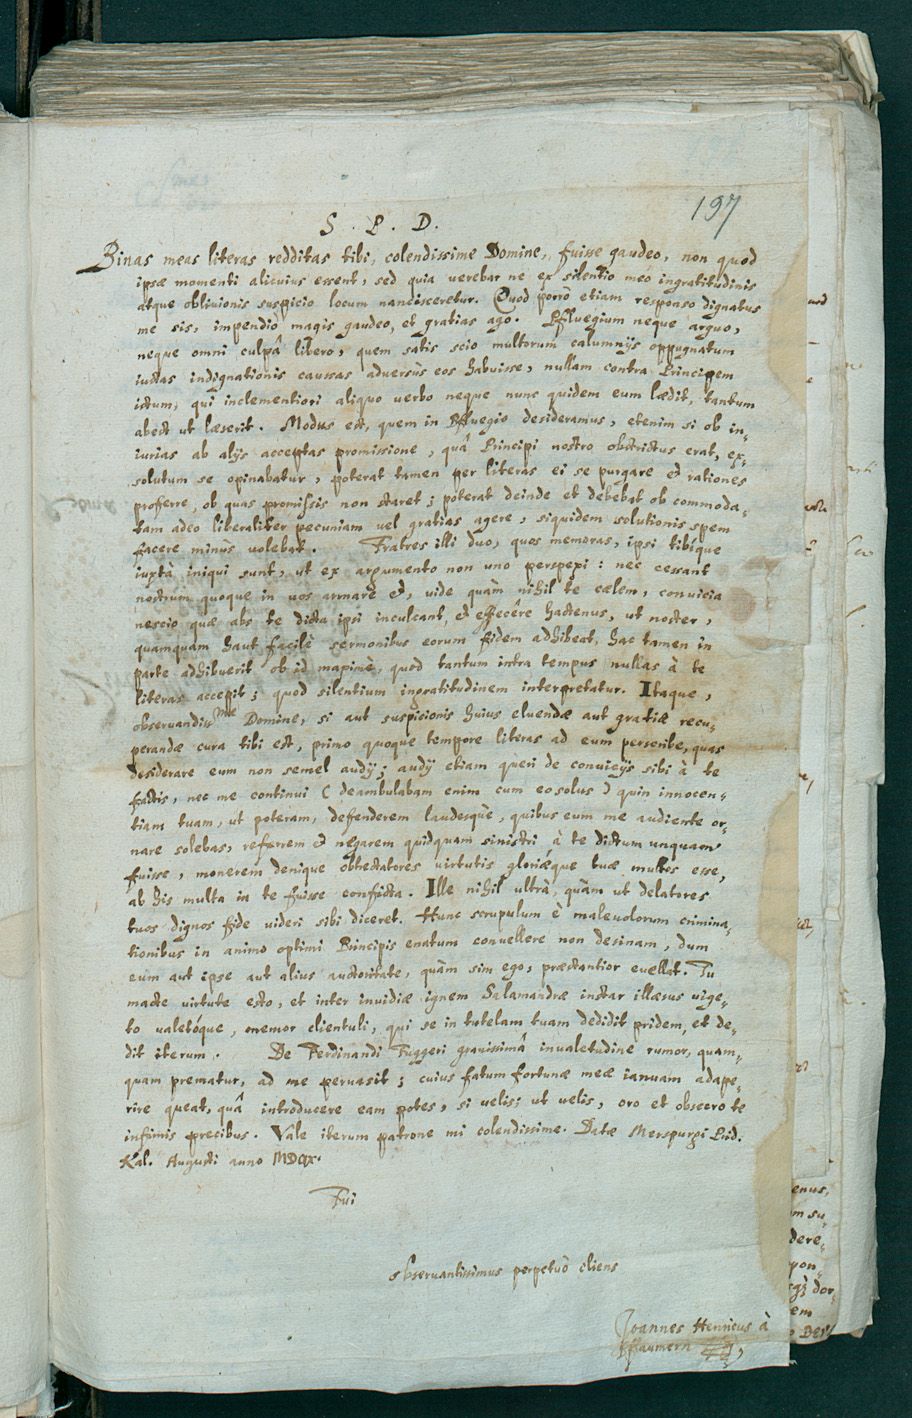 197
S. P. D.
Binas meas literas redditas tibi, colendissime Domine, fuisse gaudeo, non quod
ipsæ momenti alicuius essent, sed quia uerebar ne ex silentio meo ingratitudinis
atque obliuionis suspicio locum nancisceretur. Quod porrò etiam responso dignatus
me sis, impendiò magis gaudeo, et gratias ago. Pfluegium neque arguo,
neque omni culpâ libero, quem satis scio multorum calumnijs oppugnatum
iustas indignationis caussas aduersus eos habuisse, nullam contra Principem
ictum, qui inclementiori aliquo uerbo neque nunc quidem eum lædit, tantum
abest ut læserit. Modus est, quem in Pfluegio desideramus, etenim si ob in-
iurias ab alijs acceptas promissione, quâ Principi nostro obstrictus erat, ex-
solutum se opinabatur, poterat tamen per literas ei se purgare et rationes
proferre, ob quas promissis non staret; poterat deinde et debebat ob commoda-
tam adeo liberaliter pecuniam uel gratias agere, siquidem solutionis spem
facere minùs uolebat. Fratres illi duo, quos memoras, ipsi tibíque
iuxtà iniqui sunt, ut ex argumento non uno perspexi: nec cessant
nostrum quoque in uos armare et, uide quàm nihil te cælem, conuicia
nescio quæ abs te dicta ipsi inculcant, et effecêre hactenus, ut noster,
quamquam haut facilè sermonibus eorum fidem adhibeat, hac tamen in
parte adhibuerit ob id maximè, quod tantum intra tempus nullas à te
literas accepit; quod silentium ingratitudinem interpretatur. Itaque,
obseruandissme Domine, si aut suspicionis huius eluendæ aut gratiæ recu-
perandæ cura tibi est, primo quoque tempore literas ad eum perscribe, quas
desiderare eum non semel audij; audij etiam queri de conuicijs sibi à te
factis, nec me continui (deambulabam enim cum eo solus) quin innocen-
tiam tuam, ut poteram, defenderem laudesque, quibus eum me audiente or-
nare solebas, referrem et negarem quidquam sinistri à te dictum unquam
fuisse, monerem denique obtrectatores uirtutis gloriæque tuæ multos esse,
ab his multa in te fuisse conficta. Ille nihil ultrà, quàm ut delatores
tuos dignos fide uideri sibi diceret. Hunc scrupulum è maleuolorum crimina-
tionibus in animo optimi Principis enatum conuellere non desinam, dum
eum aut ipse aut alius auctoritate, quàm sim ego, præstantior euellat. Tu
macte uirtute esto, et inter inuidiæ ignem Salamandræ instar illæsus uige-
to ualetóque, memor clientuli, qui se in tutelam tuam dedidit pridem, et de-
dit iterum. De Ferdinandi Fuggeri grauissimâ inualetudine rumor, quam-
quam prematur, ad me peruasit; cuius fatum fortunæ meæ ianuam adape-
rire queat, quâ introducere eam potes, si uelis; ut uelis, oro et obsecro te
infimis precibus. Vale iterum patrone mi colendissime. Datæ Merspurgi Prid.
Kal. Augusti anno MDCIX.
Tui
obseruantissimus perpetuò cliens
Joannes Henricus à
Pflaumern